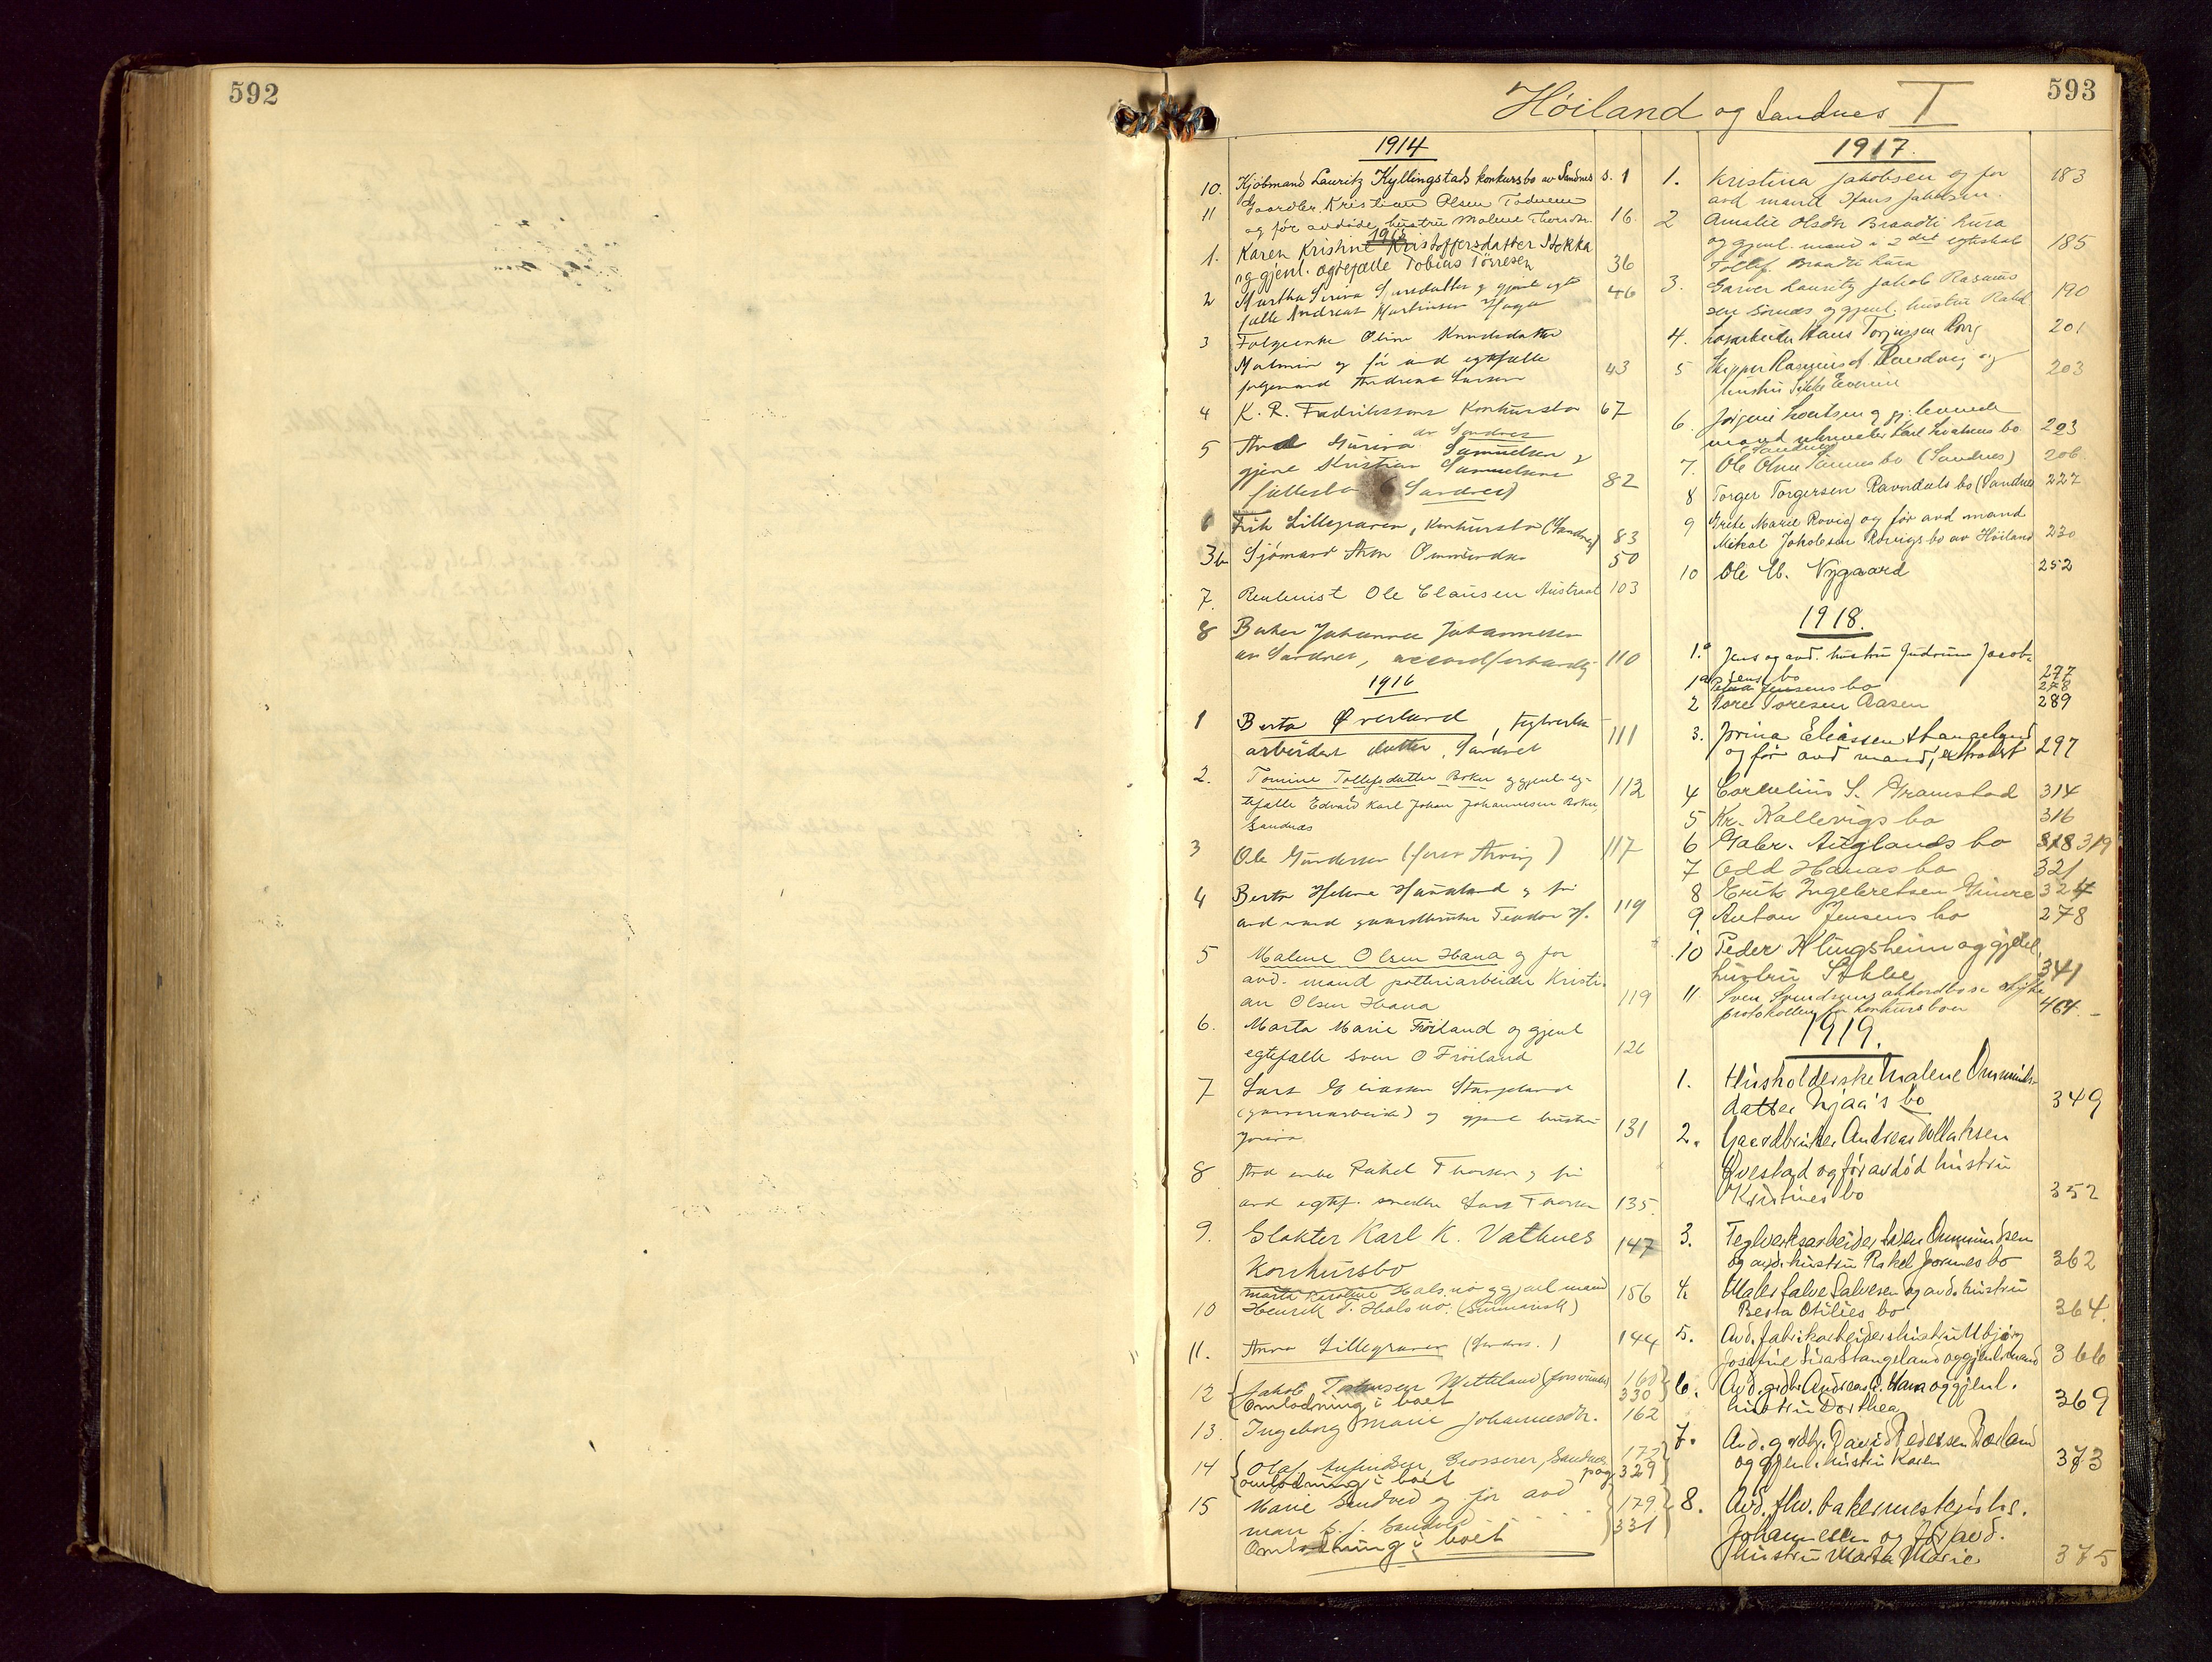 592
593
Höiland og Sandnes I
1914
10. Kjöbmand Lauritz Kyllingstads konkursbo av Sandnes s. 1
11 Gaardbr. Kristian Olsen
og før avdøde hustru Malene 16.
1915
1. Karen Kristine Kristoffersdatter Stokka
og gjenl. ægtefælle Tobias Törresen 36
2 Martha Serina og gjenl. egte
fælle Andreas Martinsen 46
3 Folgeenke Oline Knudsdatter
Malmin og før avd egtefælle
Andreas Larsen 43
4 K. R. Fredrikssons Konkursbo 67
av Sandnes
5 Avd Gurina Samuelsen og
gjenl Kristian Samuelsens
fællesbo (Sandnes) 82
6 Lillegraven, Konkursbo (Sandnes) 83
3b Sjömand Omundsen 50
7. Rentenist Ole Clausen Austraat 103
8 Baker Johannes Johannessen
av Sandnes, accordforhandlg 110
1916
1 Berta Øverland, teglverks
arbeiders datter, Sandnes 111
2. Tomine Tollefsdatter Boker og gjenl. eg-
tefælle Edvard Karl Johan Johannesen Boker,
Sandnes 112
3 Ole Gundersen ( ) 117
4 Berta Helene Haualand og før
avd mand gaardbruker Teodor H. 119
5 Malene Olsen Hana og før
avd. mand potteriarbeider Kristi-
an Olsen Hana 119
6. Marta Marie Fröiland og gjenl
egtefælle Sven O Fröiland 126
7 Lars Eliassen Stangeland
(garveriarbeider) og gjenl hustru
Jorina 131
8 Avd enke Rakel Thorsen og før
avd egtef. smeden Lars Thorsen 135.
9. Slakter Karl K. Vatnes 147
Konkursbo
10 Marta Karoline Halsnø og gjenl mand 156
Henrik T. Halsnø. (Summarisk)
11. Anna Lillegraven (Sandnes.) 144
12 Jakob Witteland (forsvunden) 160
Omlodning i boet 330
13. Ingeborg Marie Johannesdtr. 162
14 Olaf Grosserer, Sandnes 177
omlodning i boet pag 329
15 Marie Sandved og før avd 179
man Sandved
Omlodning i boet 331
1917.
1. Kristina Jakobsen og før 183
avd mand Hans Jakobsen.
2 Amalie Olsdtr Braadli Lura
og gjenl. mand i 2det egteskab 185
Tollef Braadli Lura
3. Garver Lauritz Jakob Rasmus
sen Sömes og gjenl. hustru Rakel 190
4. Løsarbeider Hans Torjussen 201
5 Skipper Rasmus A. Sandvig og 203
hustru Sikke Severine
6. Jörgine Lvertsen og gj. levende
mand Karl bo 203
Sandnes
7. Ole Olsen bo (Sandnes) 206
8 Torger Torgersen Ravndals bo (Sandnes 227
9 Grete Marie Rovig og før avd mand
Mikal Jakobsen Rovigs bo av Höiland 230
10 Ole Nygaard 252
1918.
1.a Jens og avd. hustru Gudrun Jacob-
sens bo 277
1a Petra Jensens bo 278
2 Tore Toresen Aasen 289
3. Jorina Eliassen Stangeland
og før avd mand, extrabest 297
4 Cornelius S. Gramstad 314
5 Kr. Kallevigs bo 316
6 Gabr. Auglands bo 318 319
7 Odd Hanas bo 321
8 Erik Ingebretsen Gimre 324
9. Anton Jensens bo 278
10 Peder Klingsheim og gjenl.
hustru Sikke 341
11 Sven Svendsens akkordbo se
protokollen for konkursboer 464. -
1919.
1. Husholderske Malene Ommunds-
datter Njaa's bo 349
2. Gaardbruker Andreas Mallaksen
Øvestad og før avdød hustru
Kristines bo 352
3. Teglverksarbeider Ommundsen
og avd. hustru Rakel bo 362
4 Maler Salve Salvesen og avd. hustru
Berta Otilies bo 364.
5. Avd. fabrikarbeiders hustru
Josefine Stangeland og gjenl. mand 366
6. Avd. grdbr. Andreas A. Hana og gjenl.
hustru Dorthea 369
7. Avd. grdbr. David Pedersen
og gjenl. hustru Karen 373
8. Avd. fhv. bakermester
Johannesen og før avd.
hustru Marta Marie 375